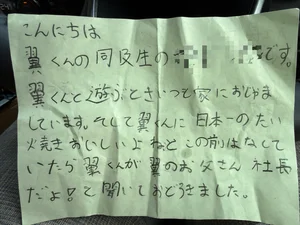 こんにちは
翼くんの同及生の です。
翼くんと遊ぶときいつも家におじゃま
しています。そして翼くんに日本一のたい
焼きおいしいよねとこの前はなして
いたら翼くんが翼のお父さん社長
だよ!と聞いておどろきました。